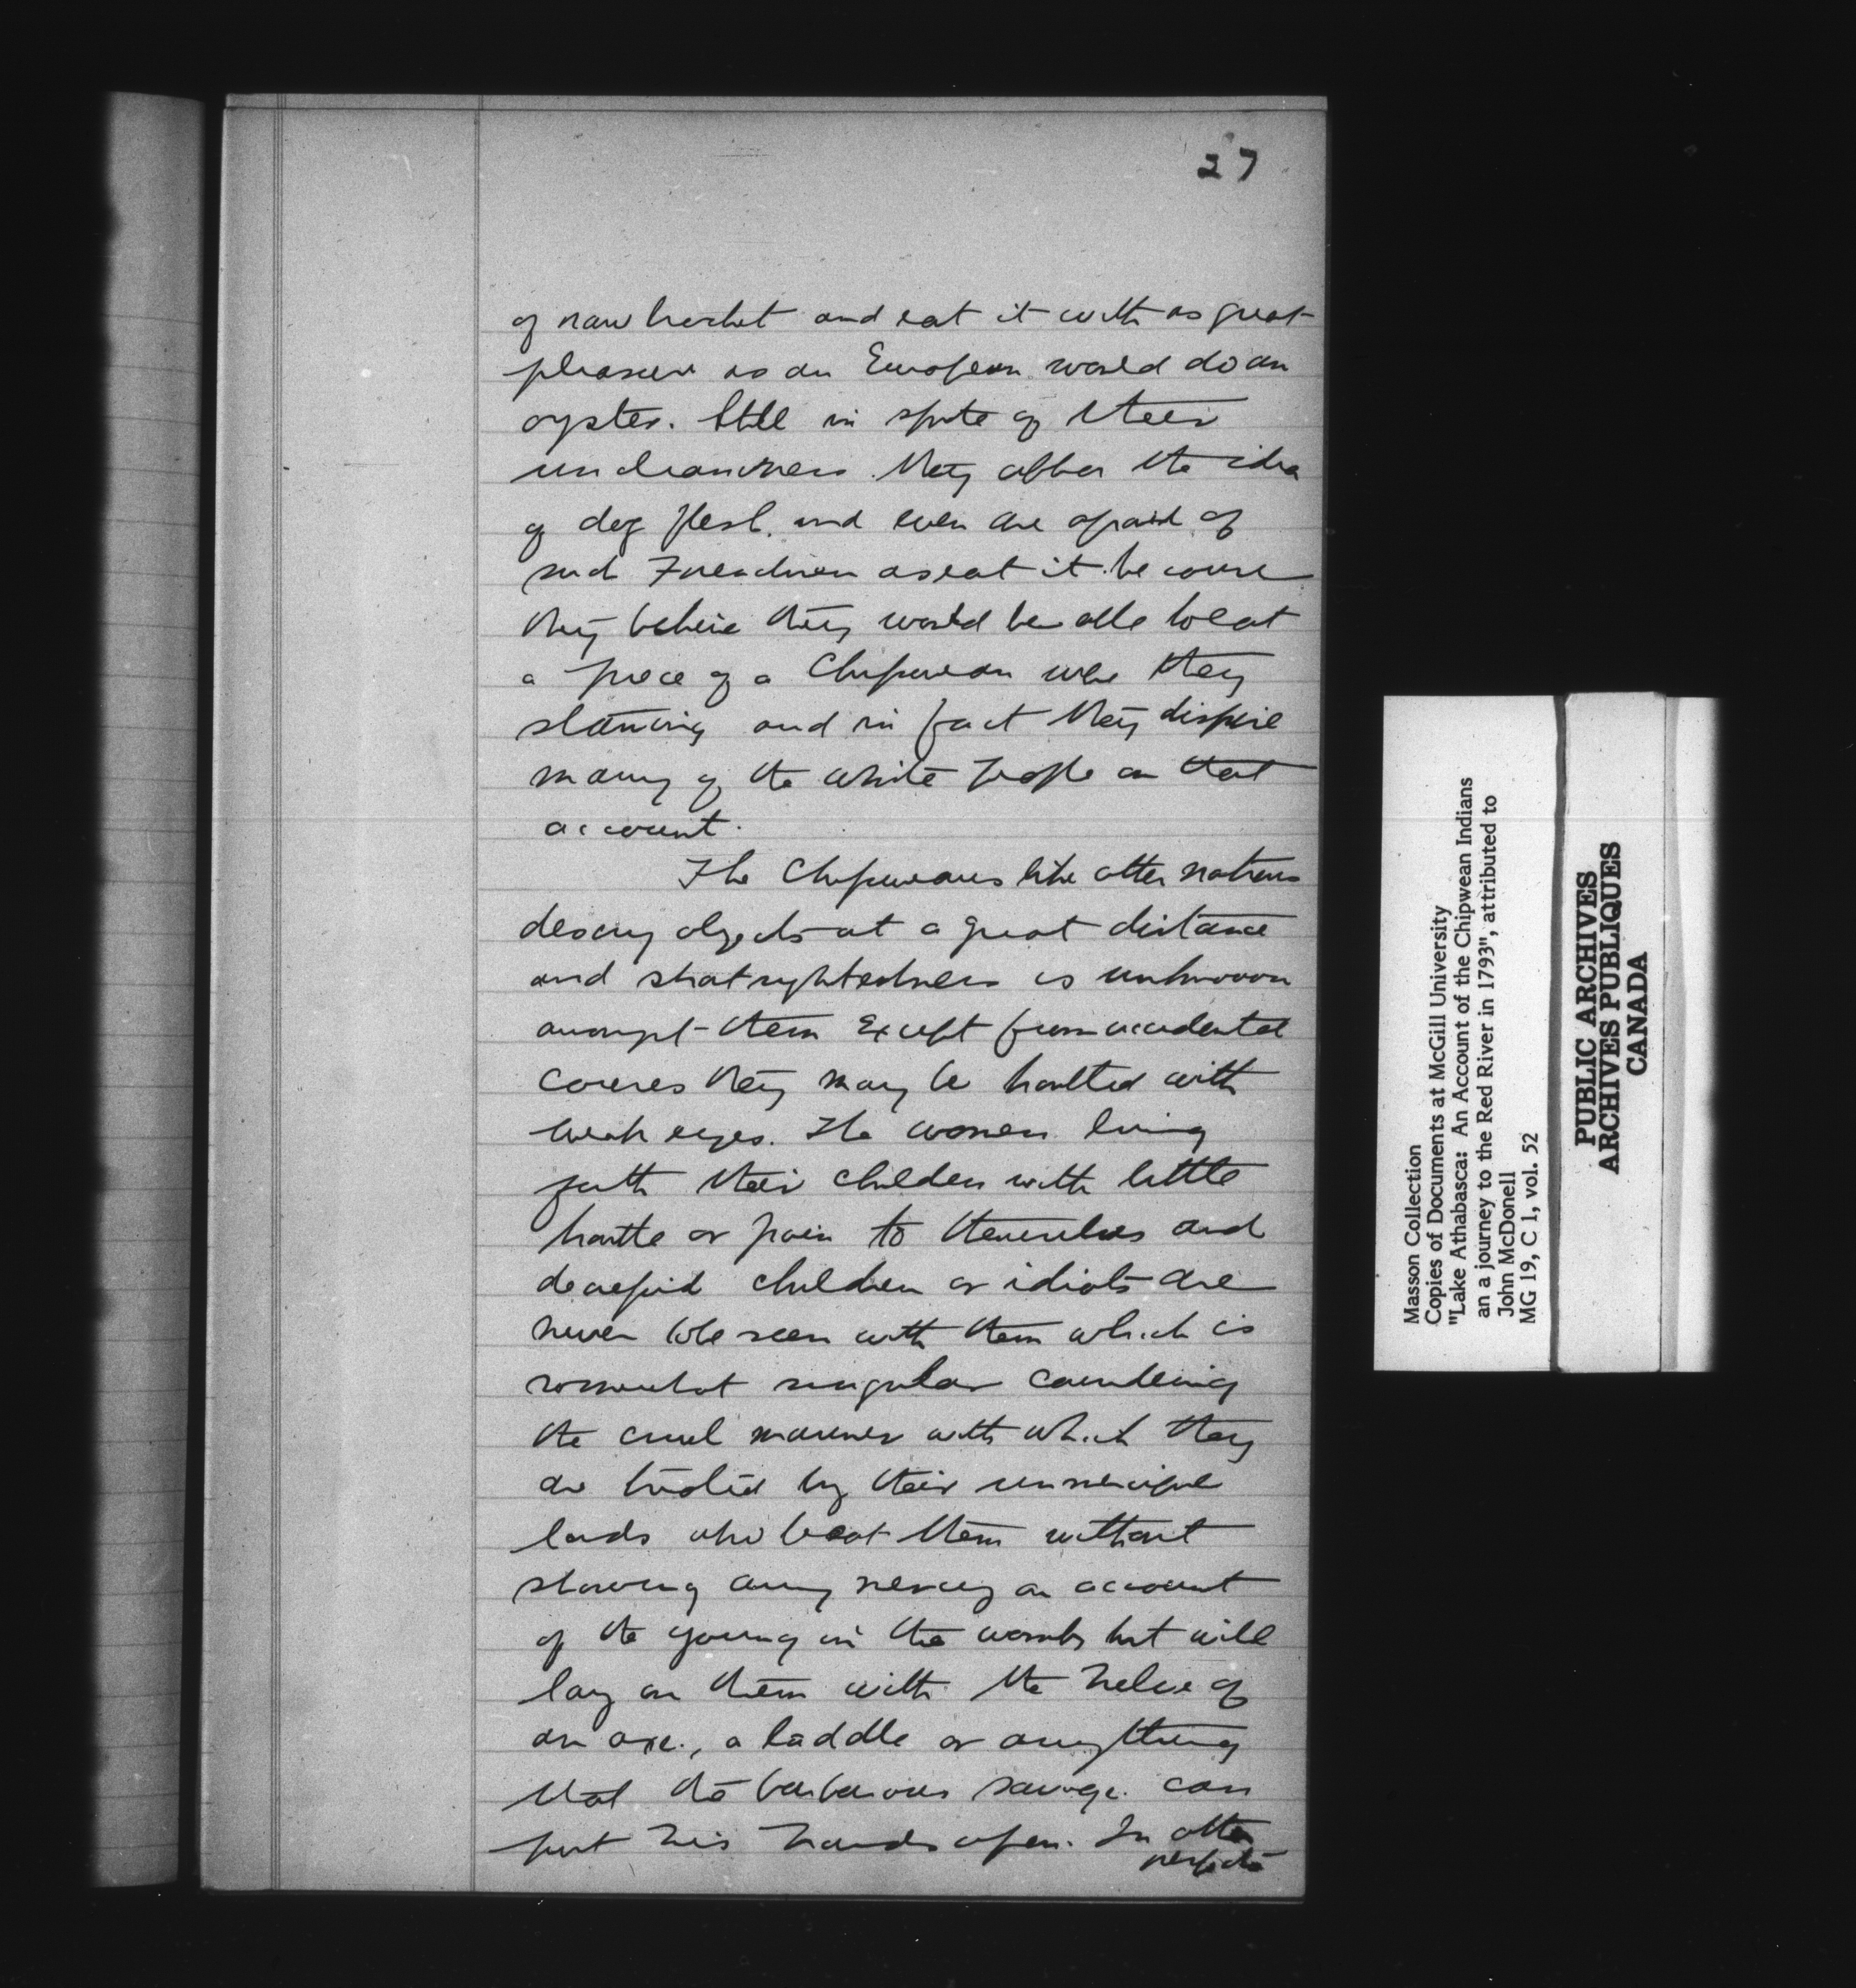 27
of raw and eat it with as great
pleasure as an European would do an
oyster. Still in spite of their
uncleanness they abhor the idea
of dog flesh, and even are afraid of
such Frenchmen as eat it because
they believe they would be able to eat
a piece of a Chipwean were they
starving and in fact they dispise
many of the white people on that
account.
The Chipweans like other nations
descry objects at a great distance
and shortsightedness is unknown
amongst them except from accidental
causes they may be troubled with
weak eyes. The women bring
forth their children with little
trouble or pain to themselves and
decrepid children or idiots are
never to be seen with them which is
somewhat singular considering
the cruel manner with which they
are treated by their unmerciful
lords who beat them without
showing any mercy on account
of the young in the womb, but will
lay on them with the helve of
an axe, a laddle or anything
that the barbarous savage can
put his hands upon. In other
respects
Masson Collection
Copies of Documents at McGill University
"Lake Athabasca: An Account of the Chipwean Indians
an a journey to the Red River in 1793", attributed to
John McDonell
MG 19, C 1, vol. 52
PUBLIC ARCHIVES
ARCHIVES PUBLIQUES
CANADA